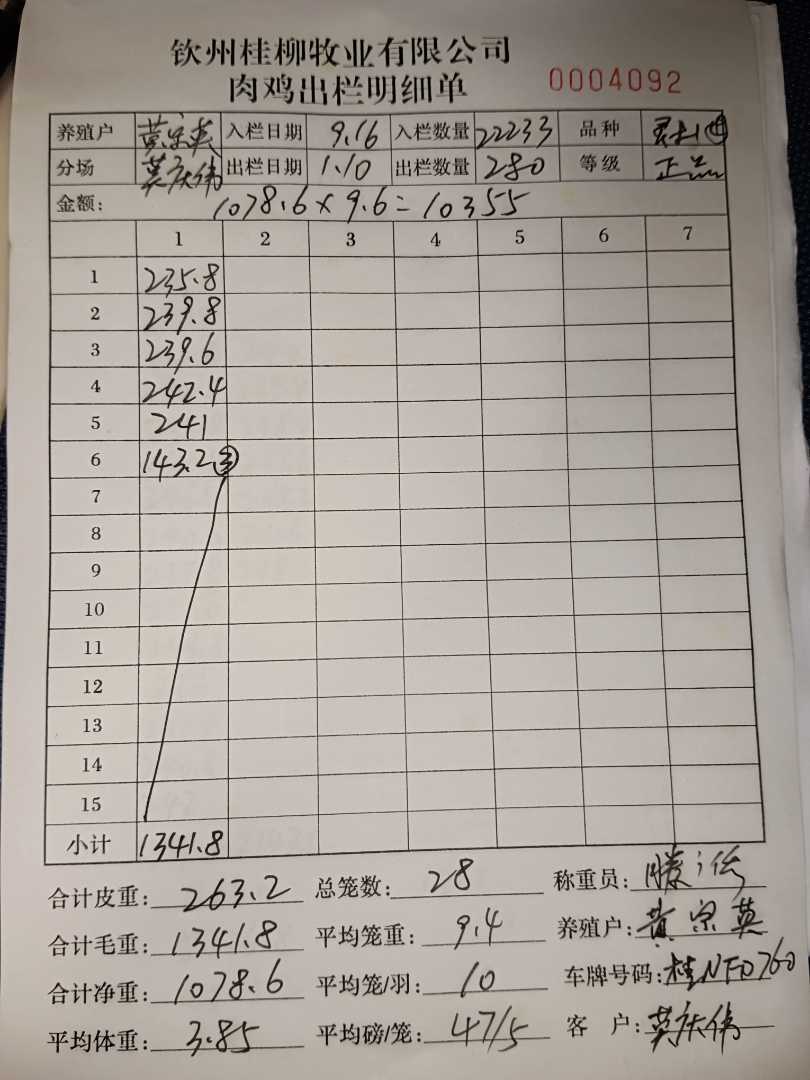 钦州桂柳牧业有限公司
肉鸡出栏明细单 0004092
养殖户 黄宗英 入栏日期 9.16 入栏数量 22233 品种
分场 莫庆伟 出栏日期 1.10 出栏数量 280 等级 正品
金额: 1078.6×9.6=10355
1 2 3 4 5 6 7
1 235.8
2 239.8
3 239.6
4 242.4
5 241
6 143.2③
7
8
9
10
11
12
13
14
15
小计 1341.8
合计皮重: 263.2 总笼数: 28 称重员: 滕
合计毛重: 1341.8 平均笼重: 9.4 养殖户: 黄宗英
合计净重: 1078.6 平均笼/羽: 10 车牌号码: 桂NFD760
平均体重: 3.85 平均磅/笼: 47/5 客户: 莫庆伟